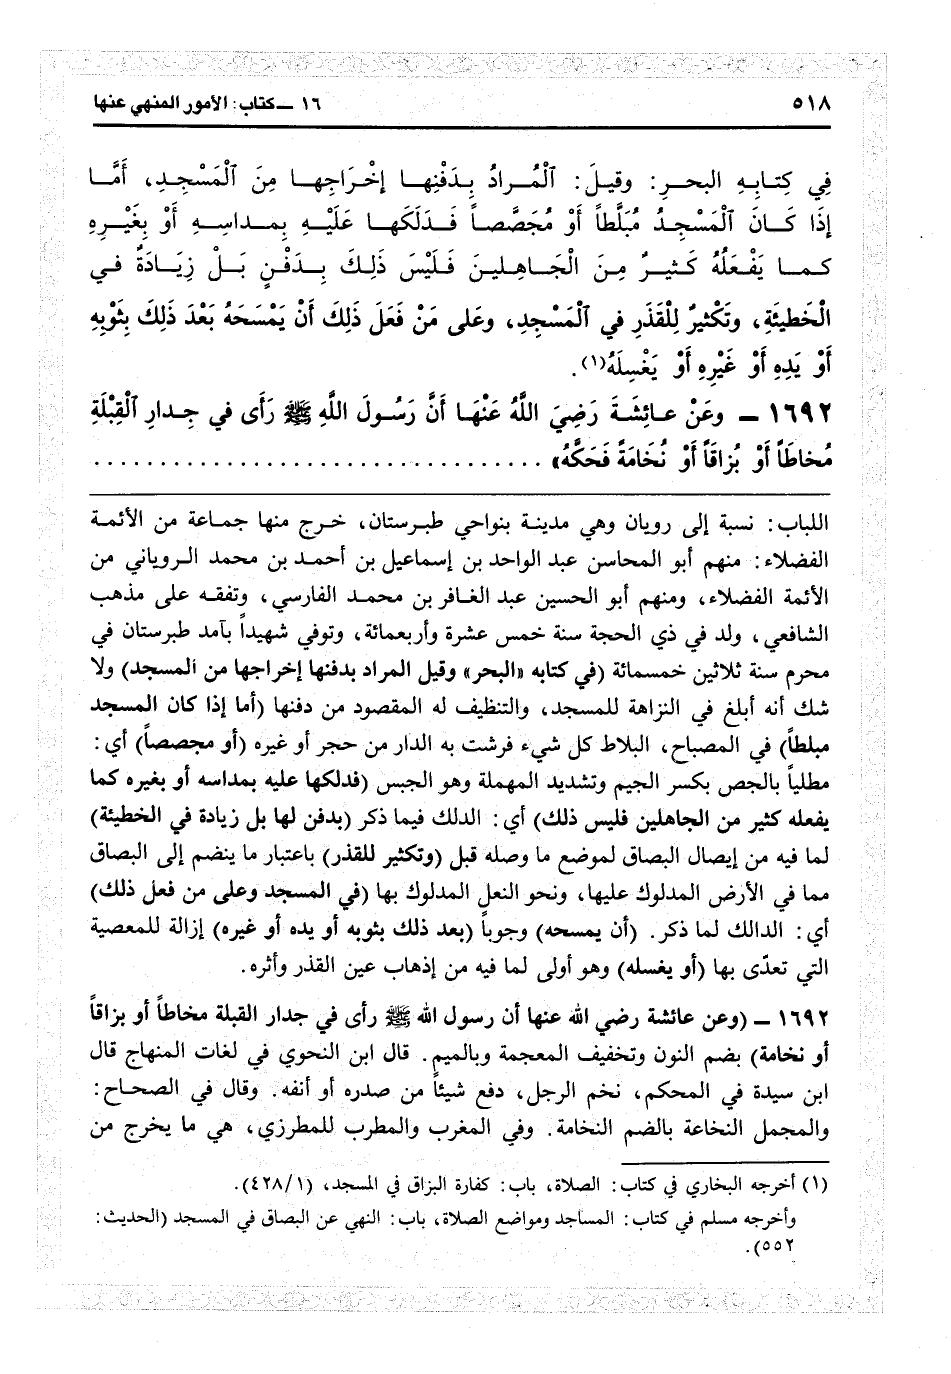 ٥١٨ ١٦ ــ كتاب: الأمور المنهي عنها
فِي كِتـابِهِ البحـرِ: وقيلَ: ٱلْمُـرادُ بِدَفْنِهـا إخْرَاجِهـا مِنَ ٱلْمَسْجِدِ، أَمَّـا
إذَا كَـانَ ٱلْمَسْجِدُ مُبَلَّطاً أَوْ مُجَصَّصـاً فَـدَلَكَهـا عَلَيْهِ بِمـداسِـهِ أَوْ بِغَيْرِهِ
كمـا يَفْعَلُهُ كثيـرٌ مِـنَ الْجَـاهِليـنَ فَلَيْسَ ذَلِـكَ بِـدَفْـنٍ بَـلْ زِيَـادَةٌ فـي
الْخَطيئَةِ، وتَكْثيرٌ لِلْقَذَرِ في ٱلْمَسْجِدِ، وعَلى مَنْ فَعَلَ ذَلِكَ أَنْ يَمْسَحَهُ بَعْدَ ذَلِكَ بِثَوْبِهِ
أَوْ يَدِهِ أَوْ غَيْرِهِ أَوْ يَغْسِلَهُ(١).
١٦٩٢ ــ وعَنْ عـائِشَةَ رَضِيَ اللَّهُ عَنْهَـا أَنَّ رَسُـولَ اللَّهِ ﷺ رَأى في جِـدارِ ٱلْقِبْلَةِ
مُخاطَاً أَوْ بُزاقَاً أَوْ نُخَامَةً فَحَكَّهُ» ..................................
اللباب: نسبة إلى رويان وهي مدينة بنواحي طبـرستان، خـرج منها جماعة من الأئمة
الفضلاء: منهم أبو المحاسن عبد الواحد بن إسماعيل بن أحمـد بن محمد الـروياني من
الأئمة الفضلاء، ومنهم أبو الحسين عبد الغـافر بن محمـد الفارسي، وتفقـه على مذهب
الشافعي، ولد في ذي الحجة سنة خمس عشرة وأربعمائة، وتوفي شهيداً بآمد طبرستان في
محرم سنة ثلاثين خمسمائة (في كتابه «البحر» وقيل المراد بدفنها إخراجها من المسجد) ولا
شك أنه أبلغ في النزاهة للمسجد، والتنظيف له المقصود من دفنها (أما إذا كان المسجد
مبلطاً) في المصباح، البلاط كل شيء فرشت به الدار من حجر أو غيره (أو مجصصاً) أي:
مطلياً بالجص بكسر الجيم وتشديد المهملة وهو الجبس (فدلكها عليه بمداسه أو بغيره كما
يفعله كثير من الجاهلين فليس ذلك) أي: الدلك فيما ذكر (بدفن لها بل زيادة في الخطيئة)
لما فيه من إيصال البصاق لموضع ما وصله قبل (وتكثير للقذر) باعتبار ما ينضم إلى البصاق
مما في الأرض المدلوك عليها، ونحو النعل المدلوك بها (في المسجد وعلى من فعل ذلك)
أي: الدالك لما ذكر. (أن يمسحه) وجوباً (بعد ذلك بثوبه أو يده أو غيره) إزالة للمعصية
التي تعدّى بها (أو يغسله) وهو أولى لما فيه من إذهاب عين القذر وأثره.
١٦٩٢ ــ (وعن عائشة رضي الله عنها أن رسول الله ﷺ رأى في جدار القبلة مخاطاً أو بزاقاً
أو نخامة) بضم النون وتخفيف المعجمة وبالميم. قال ابن النحوي في لغات المنهاج قال
ابن سيدة في المحكم، نخم الرجل، دفع شيئاً من صدره أو أنفه. وقال في الصحـاح:
والمجمل النخاعة بالضم النخامة. وفي المغرب والمطرب للمطرزي، هي ما يخرج من
(١) أخرجه البخاري في كتاب: الصلاة، باب: كفارة البزاق في المسجد، (٤٢٨/١).
وأخرجه مسلم في كتاب: المساجد ومواضع الصلاة، باب: النهي عن البصاق في المسجد (الحديث:
٥٥٢).